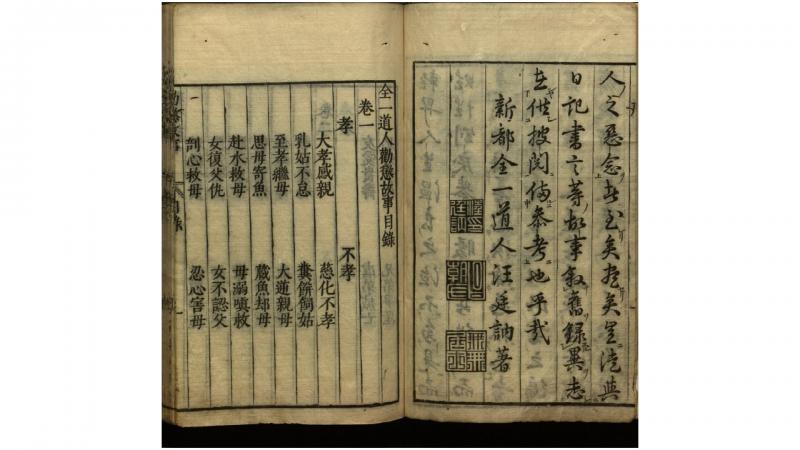 人之惡念者至矣盡矣豈徒與
日記書言等故事叙舊錄異志
在供披閱備參考也乎哉
新都全一道人汪廷訥著
全一道人勸懲故事目錄
卷一
孝 不孝
大孝感親 慈化不孝
乳姑不怠 糞餅飼姑
至孝繼母 大逆親母
思母寄魚 藏魚却母
赴水救母 母溺嗔救
女復父仇 女不認父
剖心救母 忍心害母